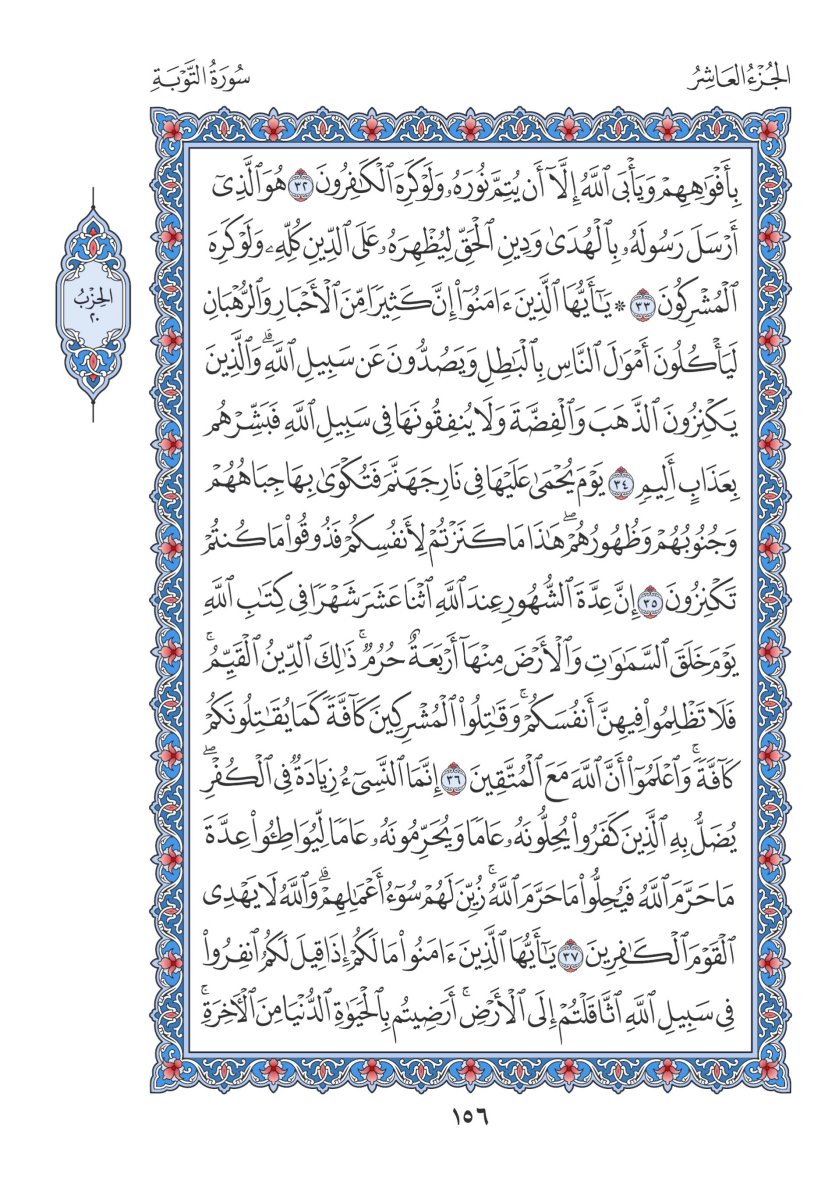 الجُزْءُ العَاشِرُ
سُورَةُ التَّوْبَةِ
بِأَفْوَٰهِهِمْ وَيَأْبَى ٱللَّهُ إِلَّآ أَن يُتِمَّ نُورَهُۥ وَلَوْ كَرِهَ ٱلْكَٰفِرُونَ ٣٢ هُوَ ٱلَّذِىٓ
أَرْسَلَ رَسُولَهُۥ بِٱلْهُدَىٰ وَدِينِ ٱلْحَقِّ لِيُظْهِرَهُۥ عَلَى ٱلدِّينِ كُلِّهِۦ وَلَوْ كَرِهَ
ٱلْمُشْرِكُونَ ٣٣ * يَٰٓأَيُّهَا ٱلَّذِينَ ءَامَنُوٓا۟ إِنَّ كَثِيرًا مِّنَ ٱلْأَحْبَارِ وَٱلرُّهْبَانِ
لَيَأْكُلُونَ أَمْوَٰلَ ٱلنَّاسِ بِٱلْبَٰطِلِ وَيَصُدُّونَ عَن سَبِيلِ ٱللَّهِ ۗ وَٱلَّذِينَ
يَكْنِزُونَ ٱلذَّهَبَ وَٱلْفِضَّةَ وَلَا يُنفِقُونَهَا فِى سَبِيلِ ٱللَّهِ فَبَشِّرْهُم
بِعَذَابٍ أَلِيمٍ ٣٤ يَوْمَ يُحْمَىٰ عَلَيْهَا فِى نَارِ جَهَنَّمَ فَتُكْوَىٰ بِهَا جِبَاهُهُمْ
وَجُنُوبُهُمْ وَظُهُورُهُمْ ۖ هَٰذَا مَا كَنَزْتُمْ لِأَنفُسِكُمْ فَذُوقُوا۟ مَا كُنتُمْ
تَكْنِزُونَ ٣٥ إِنَّ عِدَّةَ ٱلشُّهُورِ عِندَ ٱللَّهِ ٱثْنَا عَشَرَ شَهْرًا فِى كِتَٰبِ ٱللَّهِ
يَوْمَ خَلَقَ ٱلسَّمَٰوَٰتِ وَٱلْأَرْضَ مِنْهَآ أَرْبَعَةٌ حُرُمٌ ۚ ذَٰلِكَ ٱلدِّينُ ٱلْقَيِّمُ ۚ
فَلَا تَظْلِمُوا۟ فِيهِنَّ أَنفُسَكُمْ ۚ وَقَٰتِلُوا۟ ٱلْمُشْرِكِينَ كَآفَّةً كَمَا يُقَٰتِلُونَكُمْ
كَآفَّةً ۚ وَٱعْلَمُوٓا۟ أَنَّ ٱللَّهَ مَعَ ٱلْمُتَّقِينَ ٣٦ إِنَّمَا ٱلنَّسِىٓءُ زِيَادَةٌ فِى ٱلْكُفْرِ ۖ
يُضَلُّ بِهِ ٱلَّذِينَ كَفَرُوا۟ يُحِلُّونَهُۥ عَامًا وَيُحَرِّمُونَهُۥ عَامًا لِّيُوَاطِـُٔوا۟ عِدَّةَ
مَا حَرَّمَ ٱللَّهُ فَيُحِلُّوا۟ مَا حَرَّمَ ٱللَّهُ ۚ زُيِّنَ لَهُمْ سُوٓءُ أَعْمَٰلِهِمْ ۗ وَٱللَّهُ لَا يَهْدِى
ٱلْقَوْمَ ٱلْكَٰفِرِينَ ٣٧ يَٰٓأَيُّهَا ٱلَّذِينَ ءَامَنُوا۟ مَا لَكُمْ إِذَا قِيلَ لَكُمُ ٱنفِرُوا۟
فِى سَبِيلِ ٱللَّهِ ٱثَّاقَلْتُمْ إِلَى ٱلْأَرْضِ ۚ أَرَضِيتُم بِٱلْحَيَوٰةِ ٱلدُّنْيَا مِنَ ٱلْأَخِرَةِ ۚ
الحِزْبُ
٢٠
١٥٦